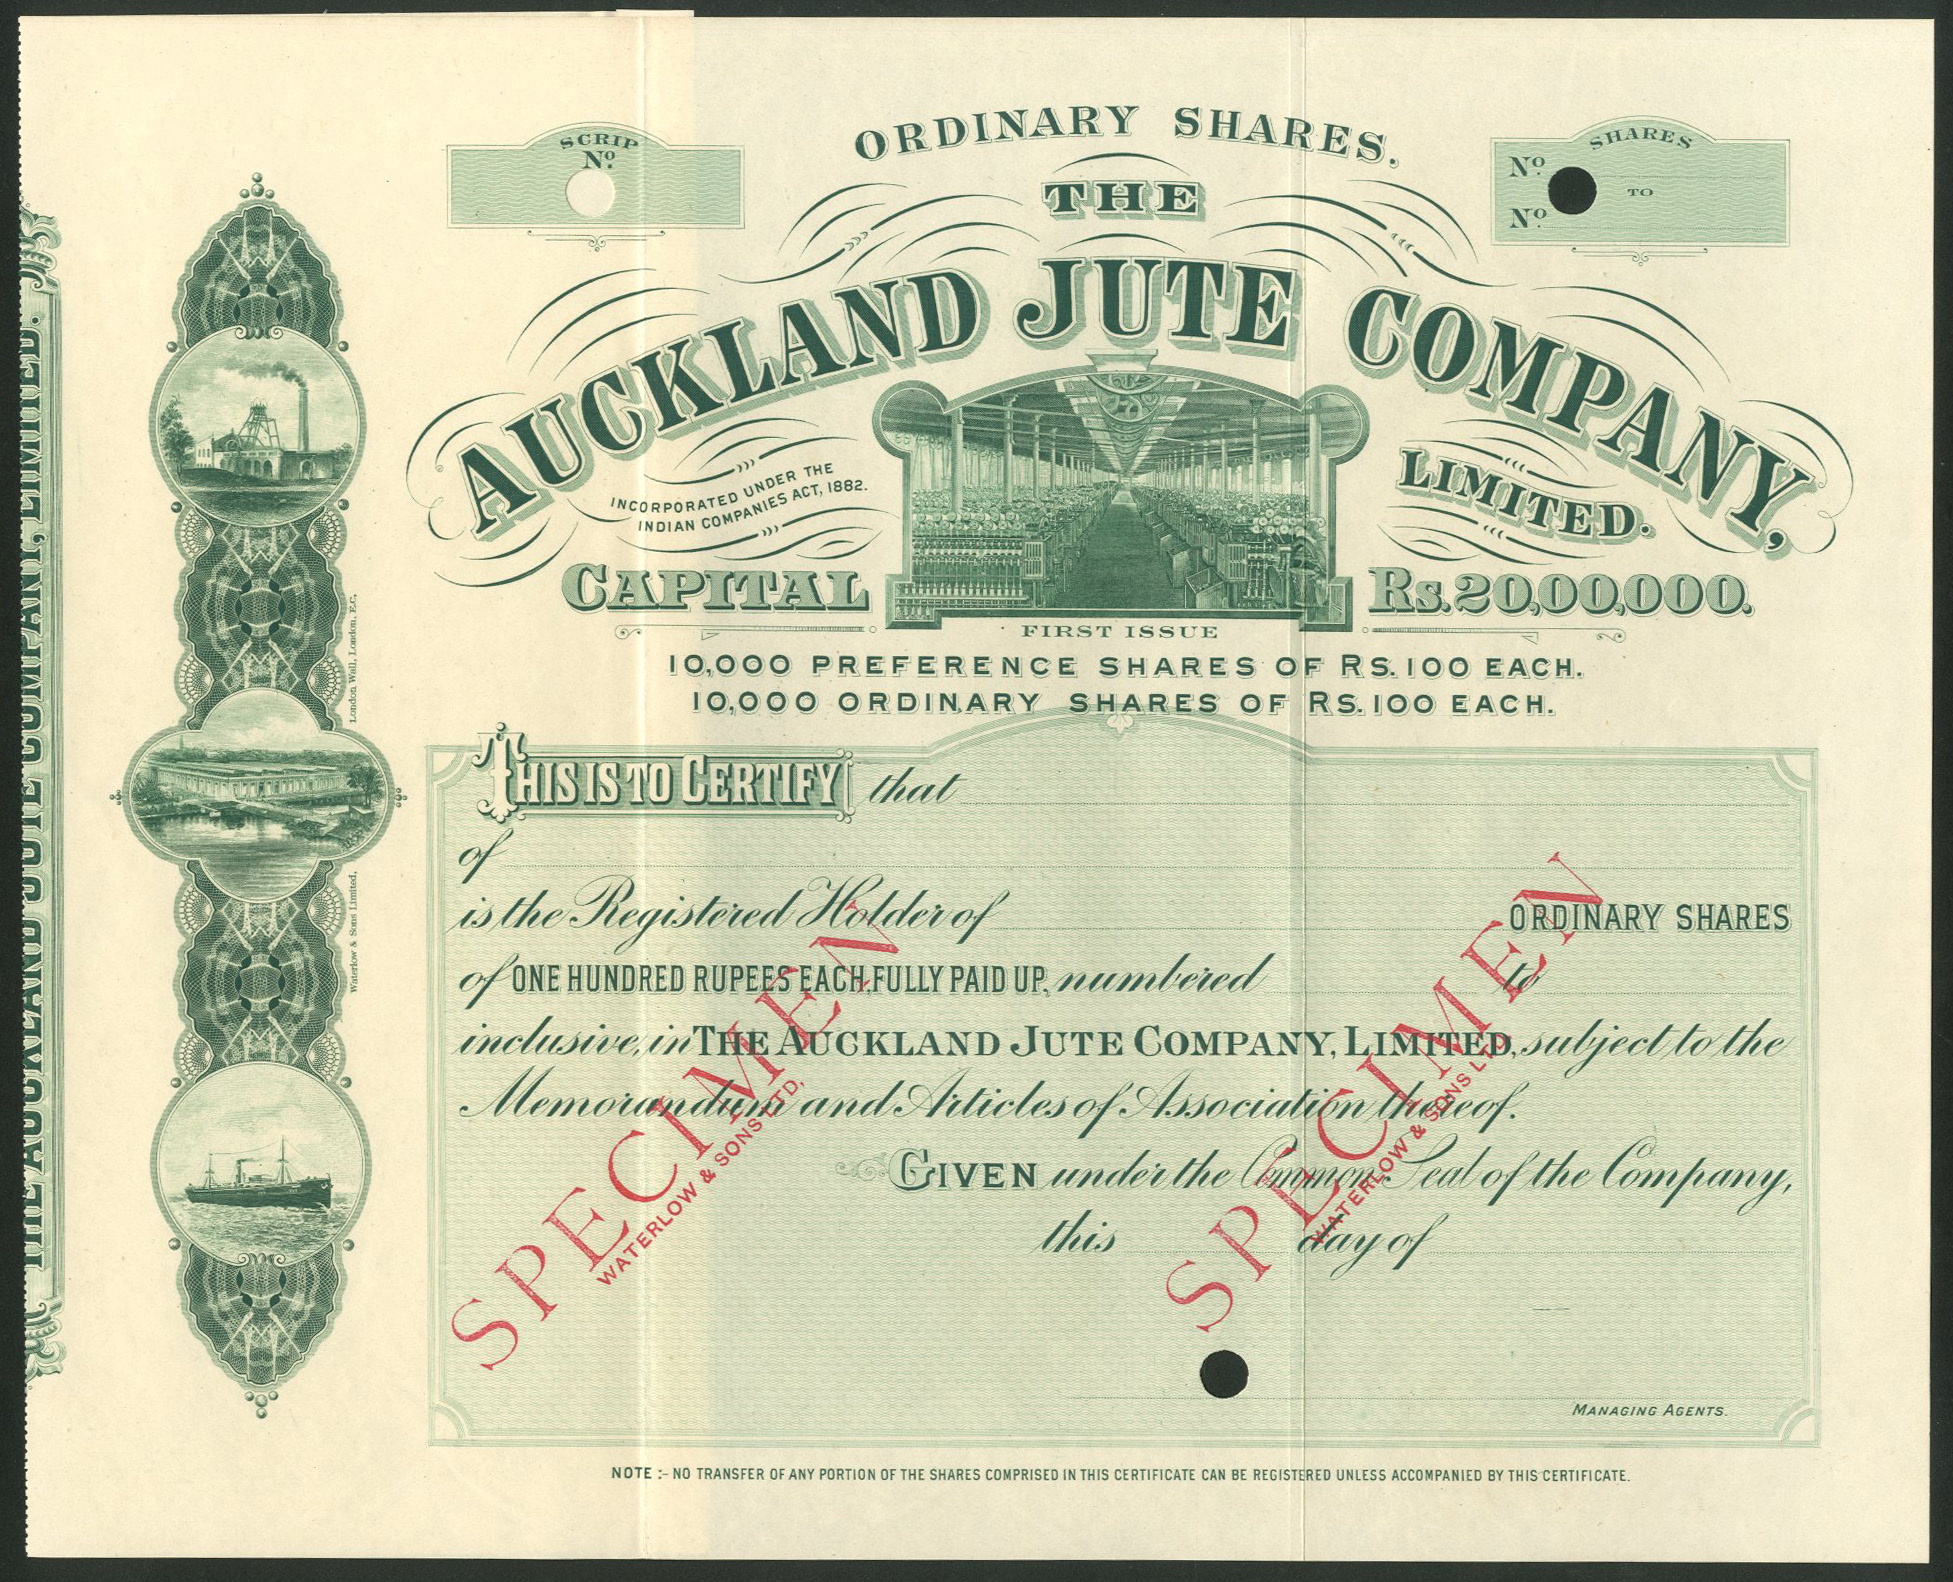 ORDINARY SHARES.
SCRIP
No.
SHARES
No. TO
No.
THE
AUCKLAND JUTE COMPANY,
LIMITED.
INCORPORATED UNDER THE
INDIAN COMPANIES ACT, 1882.
CAPITAL Rs. 20,00,000.
FIRST ISSUE
10,000 PREFERENCE SHARES OF RS. 100 EACH.
10,000 ORDINARY SHARES OF RS. 100 EACH.
THIS IS TO CERTIFY that
of
is the Registered Holder of ORDINARY SHARES
of ONE HUNDRED RUPEES EACH, FULLY PAID UP, numbered to
inclusive, in THE AUCKLAND JUTE COMPANY, LIMITED, subject to the
Memorandum and Articles of Association thereof.
GIVEN under the Common Seal of the Company,
this day of
MANAGING AGENTS.
NOTE :- NO TRANSFER OF ANY PORTION OF THE SHARES COMPRISED IN THIS CERTIFICATE CAN BE REGISTERED UNLESS ACCOMPANIED BY THIS CERTIFICATE.
SPECIMEN
WATERLOW & SONS LTD.
SPECIMEN
WATERLOW & SONS LTD.
Waterlow & Sons Limited, London Wall, London, E.C.
THE AUCKLAND JUTE COMPANY, LIMITED.